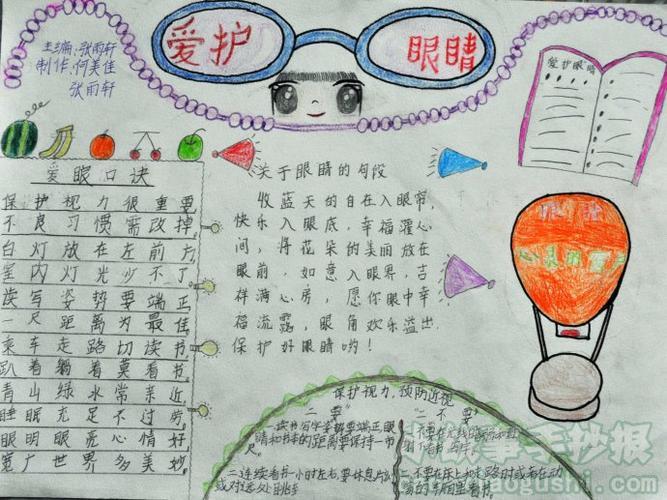 主编:张雨轩
制作:何美佳
张雨轩
爱护
眼睛
爱护眼睛
爱眼口诀
保护视力很重要
不良习惯需改掉
台灯放在左前方
室内灯光少不了
读写姿势要端正
一尺距离为最佳
乘车走路切读书
趴着躺着莫看书
青山绿水常亲近
睡眠充足不过劳
眼明眼亮心情好
宽广世界多美妙
关于眼睛的句段
收蓝天的自在入眼帘,
快乐入眼底,幸福灌心
间,将花朵的美丽放在
眼前,如意入眼界,吉
祥满心房,愿你眼中幸
福流露,眼角欢乐溢出
保护好眼睛哟!
眼睛
心灵的窗户
保护视力,预防近视
二要
一读书写字姿势要端正,眼
睛和书本的距离要保持一市
尺。
二连续看书一小时左右要休息片刻
或对远处眺望
二不要
二、不要在床上和走路时或者在动
手抄报